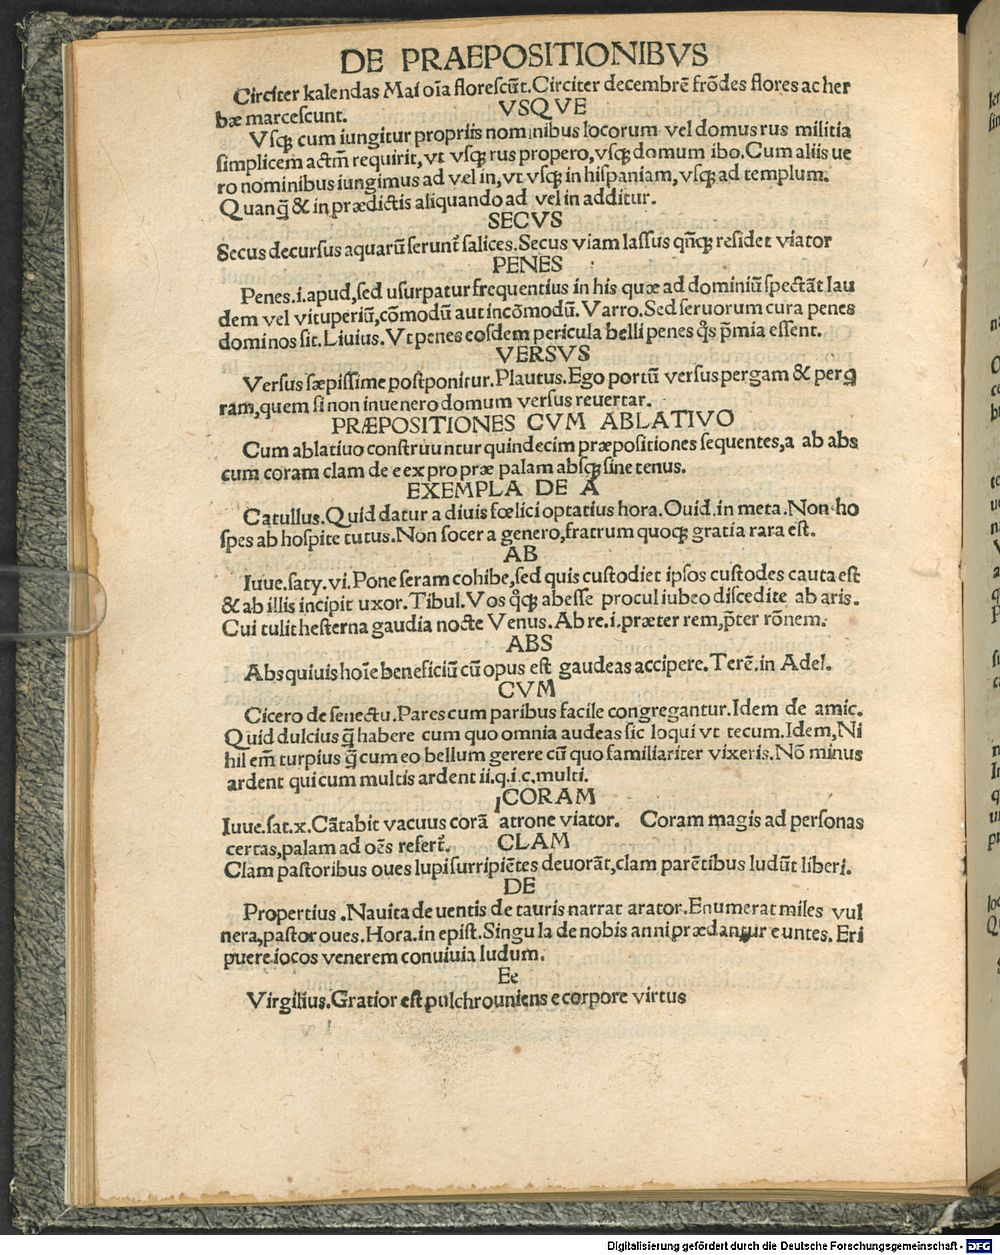 DE PRAEPOSITIONIBVS
Circiter kalendas Mai oīa florescūt. Circiter decembrē frōdes flores ac her
bæ marcescunt.
VSQVE
Vsqꝫ cum iungitur propriis nominibus locorum vel domus rus militia
simplicem actm̄ requirit, vt vsqꝫ rus propero, vsqꝫ domum ibo. Cum aliis ue
ro nominibus iungimus ad vel in, vt vsqꝫ in hispaniam, vsqꝫ ad templum.
Quanq̄ & in prædictis aliquando ad vel in additur.
SECVS
Secus decursus aquarū serunt̃ salices. Secus viam lassus qn̄qꝫ residet viator
PENES
Penes .i. apud, sed usurpatur frequentius in his quæ ad dominiū spectāt lau
dem vel vituperiū, cōmodū aut incōmodū. Varro. Sed seruorum cura penes
dominos sit. Liuius. Vt penes eosdem pericula belli penes q̊s p̄mia essent.
VERSVS
Versus sæpissime postponitur. Plautus. Ego portū versus pergam & perq
ram, quem si non inuenero domum versus reuertar.
PRÆPOSITIONES CVM ABLATIVO
Cum ablatiuo construuntur quindecim præpositiones sequentes, a ab abs
cum coram clam de e ex pro præ palam absqꝫ sine tenus.
EXEMPLA DE A
Catullus. Quid datur a diuis fœlici optatius hora. Ouid. in meta. Non ho
spes ab hospite tutus. Non socer a genero, fratrum quoqꝫ gratia rara est.
AB
Iuue. saty. vi. Pone seram cohibe, sed quis custodiet ipsos custodes cauta est
& ab illis incipit uxor. Tibul. Vos q̊qꝫ abesse procul iubeo discedite ab aris.
Cui tulit hesterna gaudia nocte Venus. Ab re .i. præter rem, p̄ter rōnem.
ABS
Abs quiuis hoīe beneficiū cū opus est gaudeas accipere. Terē. in Adel.
CVM
Cicero de senectu. Pares cum paribus facile congregantur. Idem de amic.
Quid dulcius q̄ habere cum quo omnia audeas sic loqui vt tecum. Idem, Ni
hil em̄ turpius q̄ cum eo bellum gerere cū quo familiariter vixeris. Nō minus
ardent qui cum multis ardent ii. q. i. c. multi.
CORAM
Iuue. sat. x. Cātabit vacuus corā latrone viator. Coram magis ad personas
certas, palam ad oēs refert̃.
CLAM
Clam pastoribus oues lupi surripiētes deuorāt, clam parētibus ludūt liberi.
DE
Propertius. Nauita de uentis de tauris narrat arator. Enumerat miles vul
nera, pastor oues. Hora. in epist. Singula de nobis anni prædantur euntes. Eri
puere iocos venerem conuiuia ludum.
Ee
Virgilius. Gratior est pulchro uniens e corpore virtus
Digitalisierung gefördert durch die Deutsche Forschungsgemeinschaft - DFG